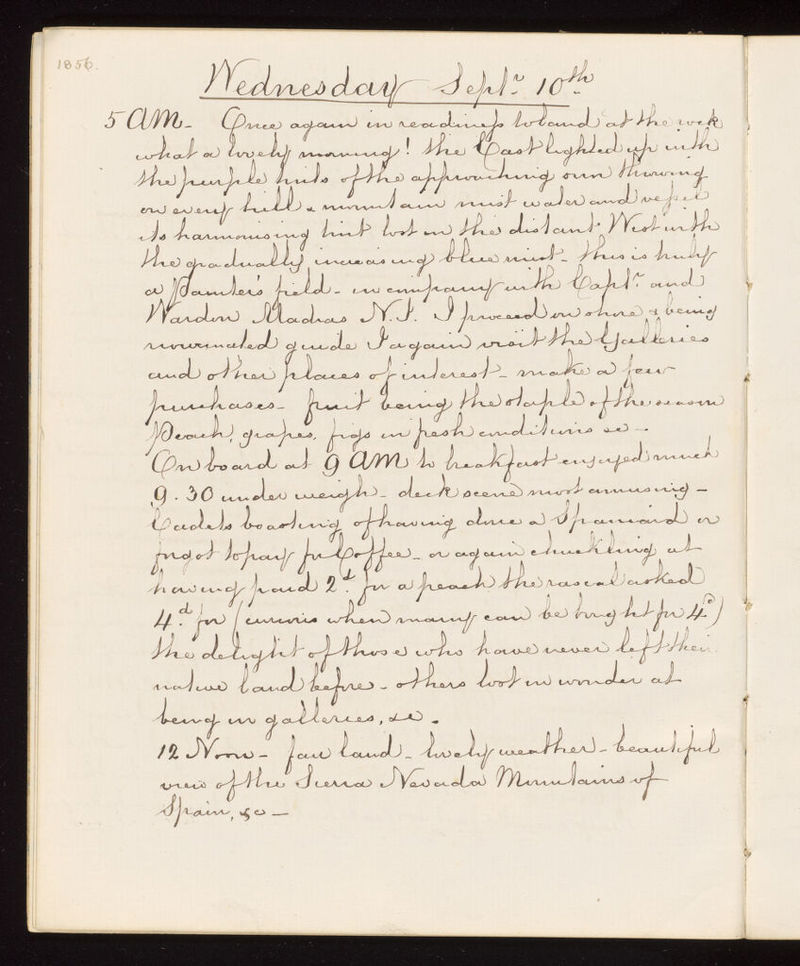 1856.
Wednesday Septr. 10th
5 AM - Once again in readiness to land at the rock
what a lovely morning! the East lighted up with
the purple tints of the approaching sun throwing
on every hill & mountain mist water and vessel
its harmonising tint lost in the distant West with
the gradually increasing blue mist - this is truly
a Painter's field - in company with Captn. and
Wardon Madras N.I. I proceed on shore & being
nominated guide I again visit the Galleries
and other places of interest - make a few
purchases - fruit being the staple of the season
Peach, grapes, figs in fresh conditions &c -
On board at 9 AM to breakfast enjoyed much
9.30 under weigh - deck scene most amusing -
Cadets boasting of having done a Spaniard or
forgot to pay for Coffee - or again chuckling at
having paid 2d. for a peach the rascal asked
4d. for (curious when many can be bought for 4d)
the delight of those who have never left their
native land before - others lost in wonder at
being in galleries, &c.
12 Noon - fair land - lovely weather - beautiful
view of the Sierra Nevada Mountains of
Spain, &c -